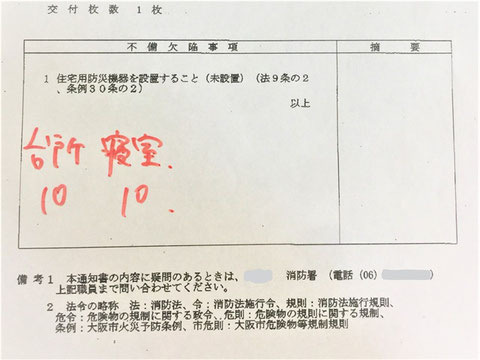 交付枚数 1枚
不備欠陥事項 摘要
1 住宅用防災機器を設置すること(未設置)(法9条の2
、条例30条の2)
以上
台所 寝室.
10 10.
備考1 本通知書の内容に疑問のあるときは、 消防署 (電話(06)
上記職員まで問い合わせてください。
2 法令の略称 法:消防法、令:消防法施行令、規則:消防法施行規則、
危令:危険物の規制に関する政令、危則:危険物の規則に関する規制、
条例:大阪市火災予防条例、市危則:大阪市危険物等規制規則